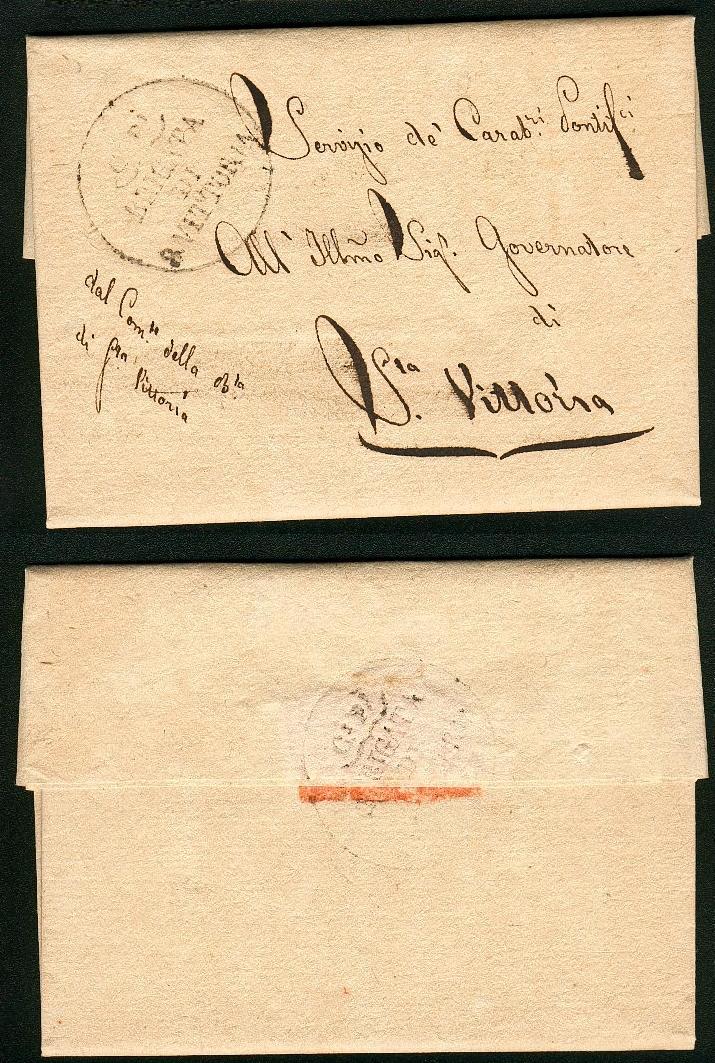 BRIGATA
DI
S. VITTORIA
Servizio de' Carab.ri Pontif.ci
All' Illmo Sig.r Governatore
di
S.ta Vittoria
dal Com.te della B.ta
di S.ta Vittoria
BRIGATA
DI